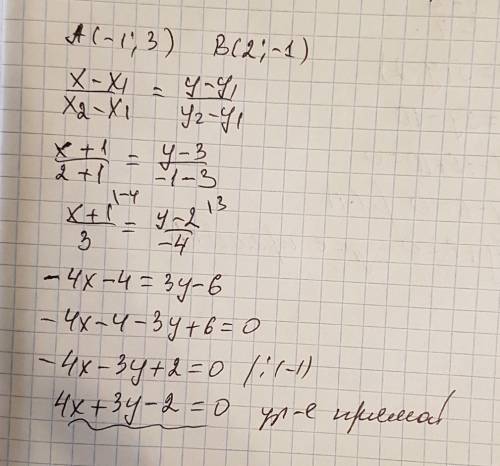 A(-1; 3) B(2; -1)
x-x₁/x₂-x₁ = y-y₁/y₂-y₁
x+1/2+1 = y-3/-1-3
x+1/3 |-4 = y-2/-4 |3
-4x-4=3y-6
-4x-4-3y+6=0
-4x-3y+2=0 /:(-1)
4x+3y-2=0 ур-е прямой